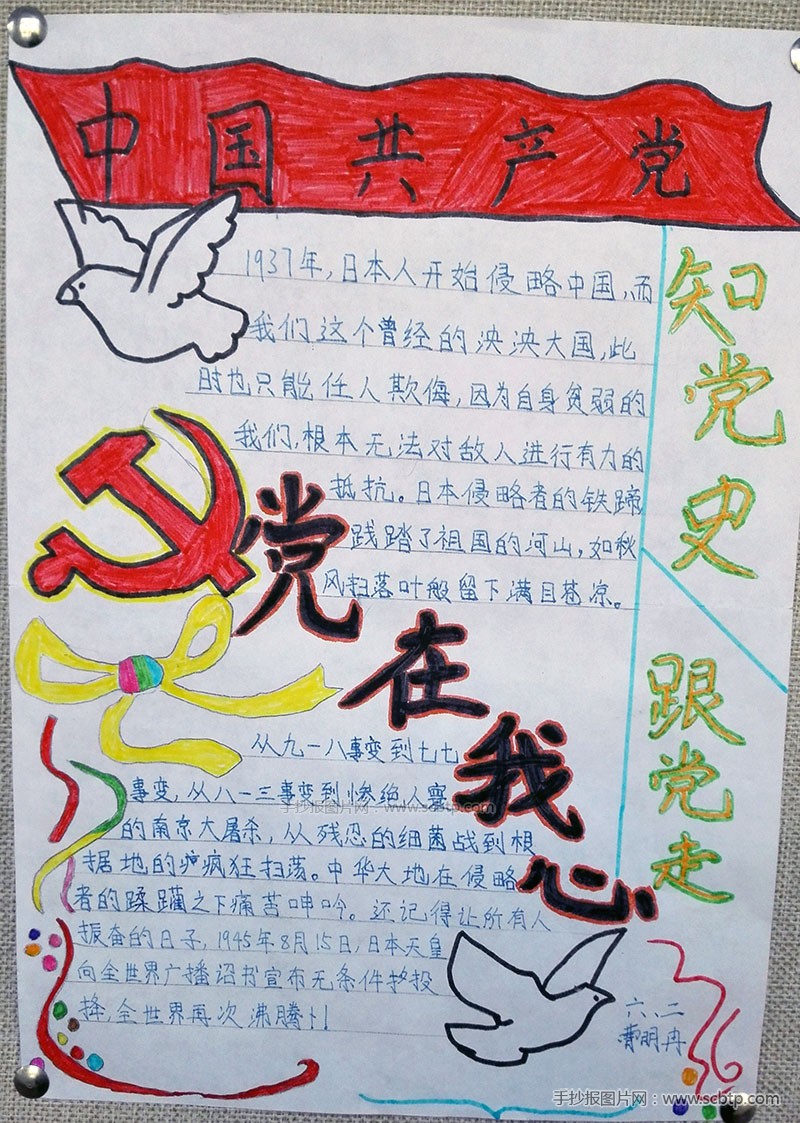 中国共产党
1937年,日本人开始侵略中国,而
我们这个曾经的泱泱大国,此
时也只能任人欺侮,因为自身贫弱的
我们,根本无法对敌人进行有力的
抵抗。日本侵略者的铁蹄
践踏了祖国的河山,如秋
风扫落叶般留下满目苍凉。
知党史
跟党走
党在我心
从九一八事变到七七
事变,从八一三事变到惨绝人寰
的南京大屠杀,从残忍的细菌战到根
据地的疯狂扫荡。中华大地在侵略
者的蹂躏之下痛苦呻吟。还记得让所有人
振奋的日子,1945年8月15日,日本天皇
向全世界广播诏书宣布无条件投
降,全世界再次沸腾!
六、二
曹明冉
手抄报图片网:www.scbtp.com
手抄报图片网:www.scbtp.com